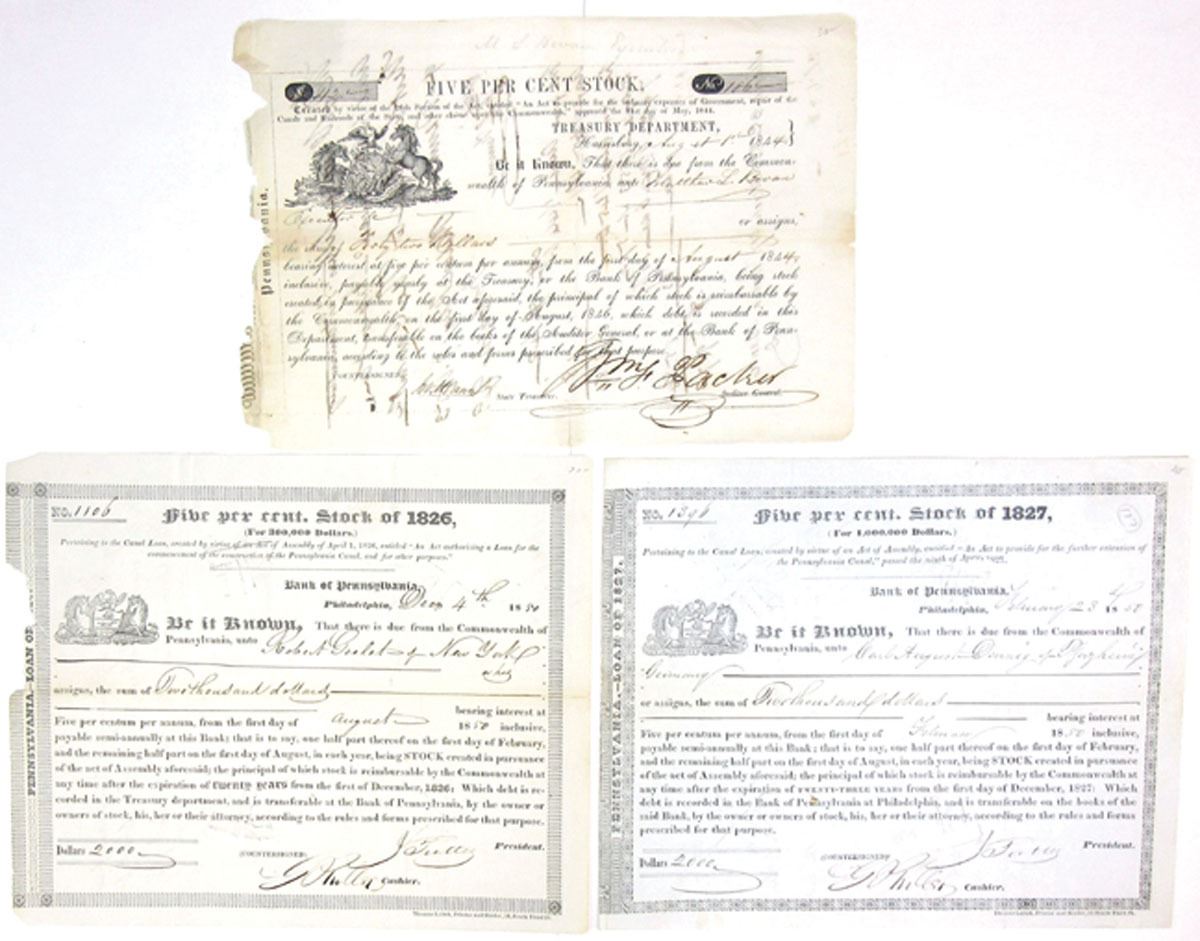 M L Bevan Executor
FIVE PER CENT STOCK.
No. 1162
Created by virtue of the Section of the Act, entitled "An Act to provide for the ordinary expenses of Government, repair of the
Canals and Railroads of the State, and other claims upon the Commonwealth," approved the 31st day of May, 1844.
TREASURY DEPARTMENT,
Harrisburg, August 1st 1844
Be it known, That there is due from the Common-
wealth of Pennsylvania, unto Matthew L. Bevan
Executor &c
or assigns,
the sum of Forty two Dollars
bearing interest at five per centum per annum, from the first day of August 1844
inclusive, payable yearly at the Treasury, or the Bank of Pennsylvania, being stock
created in pursuance of the Act aforesaid, the principal of which stock is reimbursable by
the Commonwealth, on the first day of August, 1846, which debt is recorded in this
Department, transferable on the books of the Auditor General, or at the Bank of Penn-
sylvania, according to the rules and forms prescribed for that purpose.
COUNTERSIGNED
State Treasurer.
Wm F Packer
Auditor General.
Pennsylvania.
NO. 1106
Five per cent. Stock of 1826,
(For 300,000 Dollars.)
Pertaining to the Canal Loan, created by virtue of an Act of Assembly of April 1, 1826, entitled "An Act authorizing a Loan for the
commencement of the construction of the Pennsylvania Canal, and for other purposes."
Bank of Pennsylvania,
Philadelphia, Decr 4th 1850
Be it Known, That there is due from the Commonwealth of
Pennsylvania, unto Robert Goelet of New York
or his
assigns, the sum of Two thousand dollars
bearing interest at
Five per centum per annum, from the first day of August 1850 inclusive,
payable semi-annually at this Bank; that is to say, one half part thereof on the first day of February,
and the remaining half part on the first day of August, in each year, being STOCK created in pursuance
of the act of Assembly aforesaid; the principal of which stock is reimbursable by the Commonwealth at
any time after the expiration of TWENTY YEARS from the first of December, 1826: Which debt is re-
corded in the Treasury department, and is transferable at the Bank of Pennsylvania, by the owner or
owners of stock, his, her or their attorney, according to the rules and forms prescribed for that purpose.
Dollars 2000
(COUNTERSIGNED)
President.
Cashier.
PENNSYLVANIA.—LOAN OF
NO. 1396
Five per cent. Stock of 1827,
(For 1,000,000 Dollars.)
Pertaining to the Canal Loan, created by virtue of an Act of Assembly, entitled "An Act to provide for the further extension of
the Pennsylvania Canal," passed the ninth of April, 1827.
Bank of Pennsylvania,
Philadelphia, February 23d 1850
Be it Known, That there is due from the Commonwealth of
Pennsylvania, unto Carl August
Germany
or assigns, the sum of Two thousand dollars
bearing interest at
Five per centum per annum, from the first day of February 1850 inclusive,
payable semi-annually at this Bank; that is to say, one half part thereof on the first day of February,
and the remaining half part on the first day of August, in each year, being STOCK created in pursuance
of the act of Assembly aforesaid; the principal of which stock is reimbursable by the Commonwealth at
any time after the expiration of TWENTY-THREE YEARS from the first day of December, 1827: Which
debt is recorded in the Bank of Pennsylvania at Philadelphia, and is transferable on the books of the
said Bank, by the owner or owners of stock, his, her or their attorney, according to the rules and forms
prescribed for that purpose.
Dollars 2000
(COUNTERSIGNED)
President.
Cashier.
PENNSYLVANIA.—LOAN OF 1827.